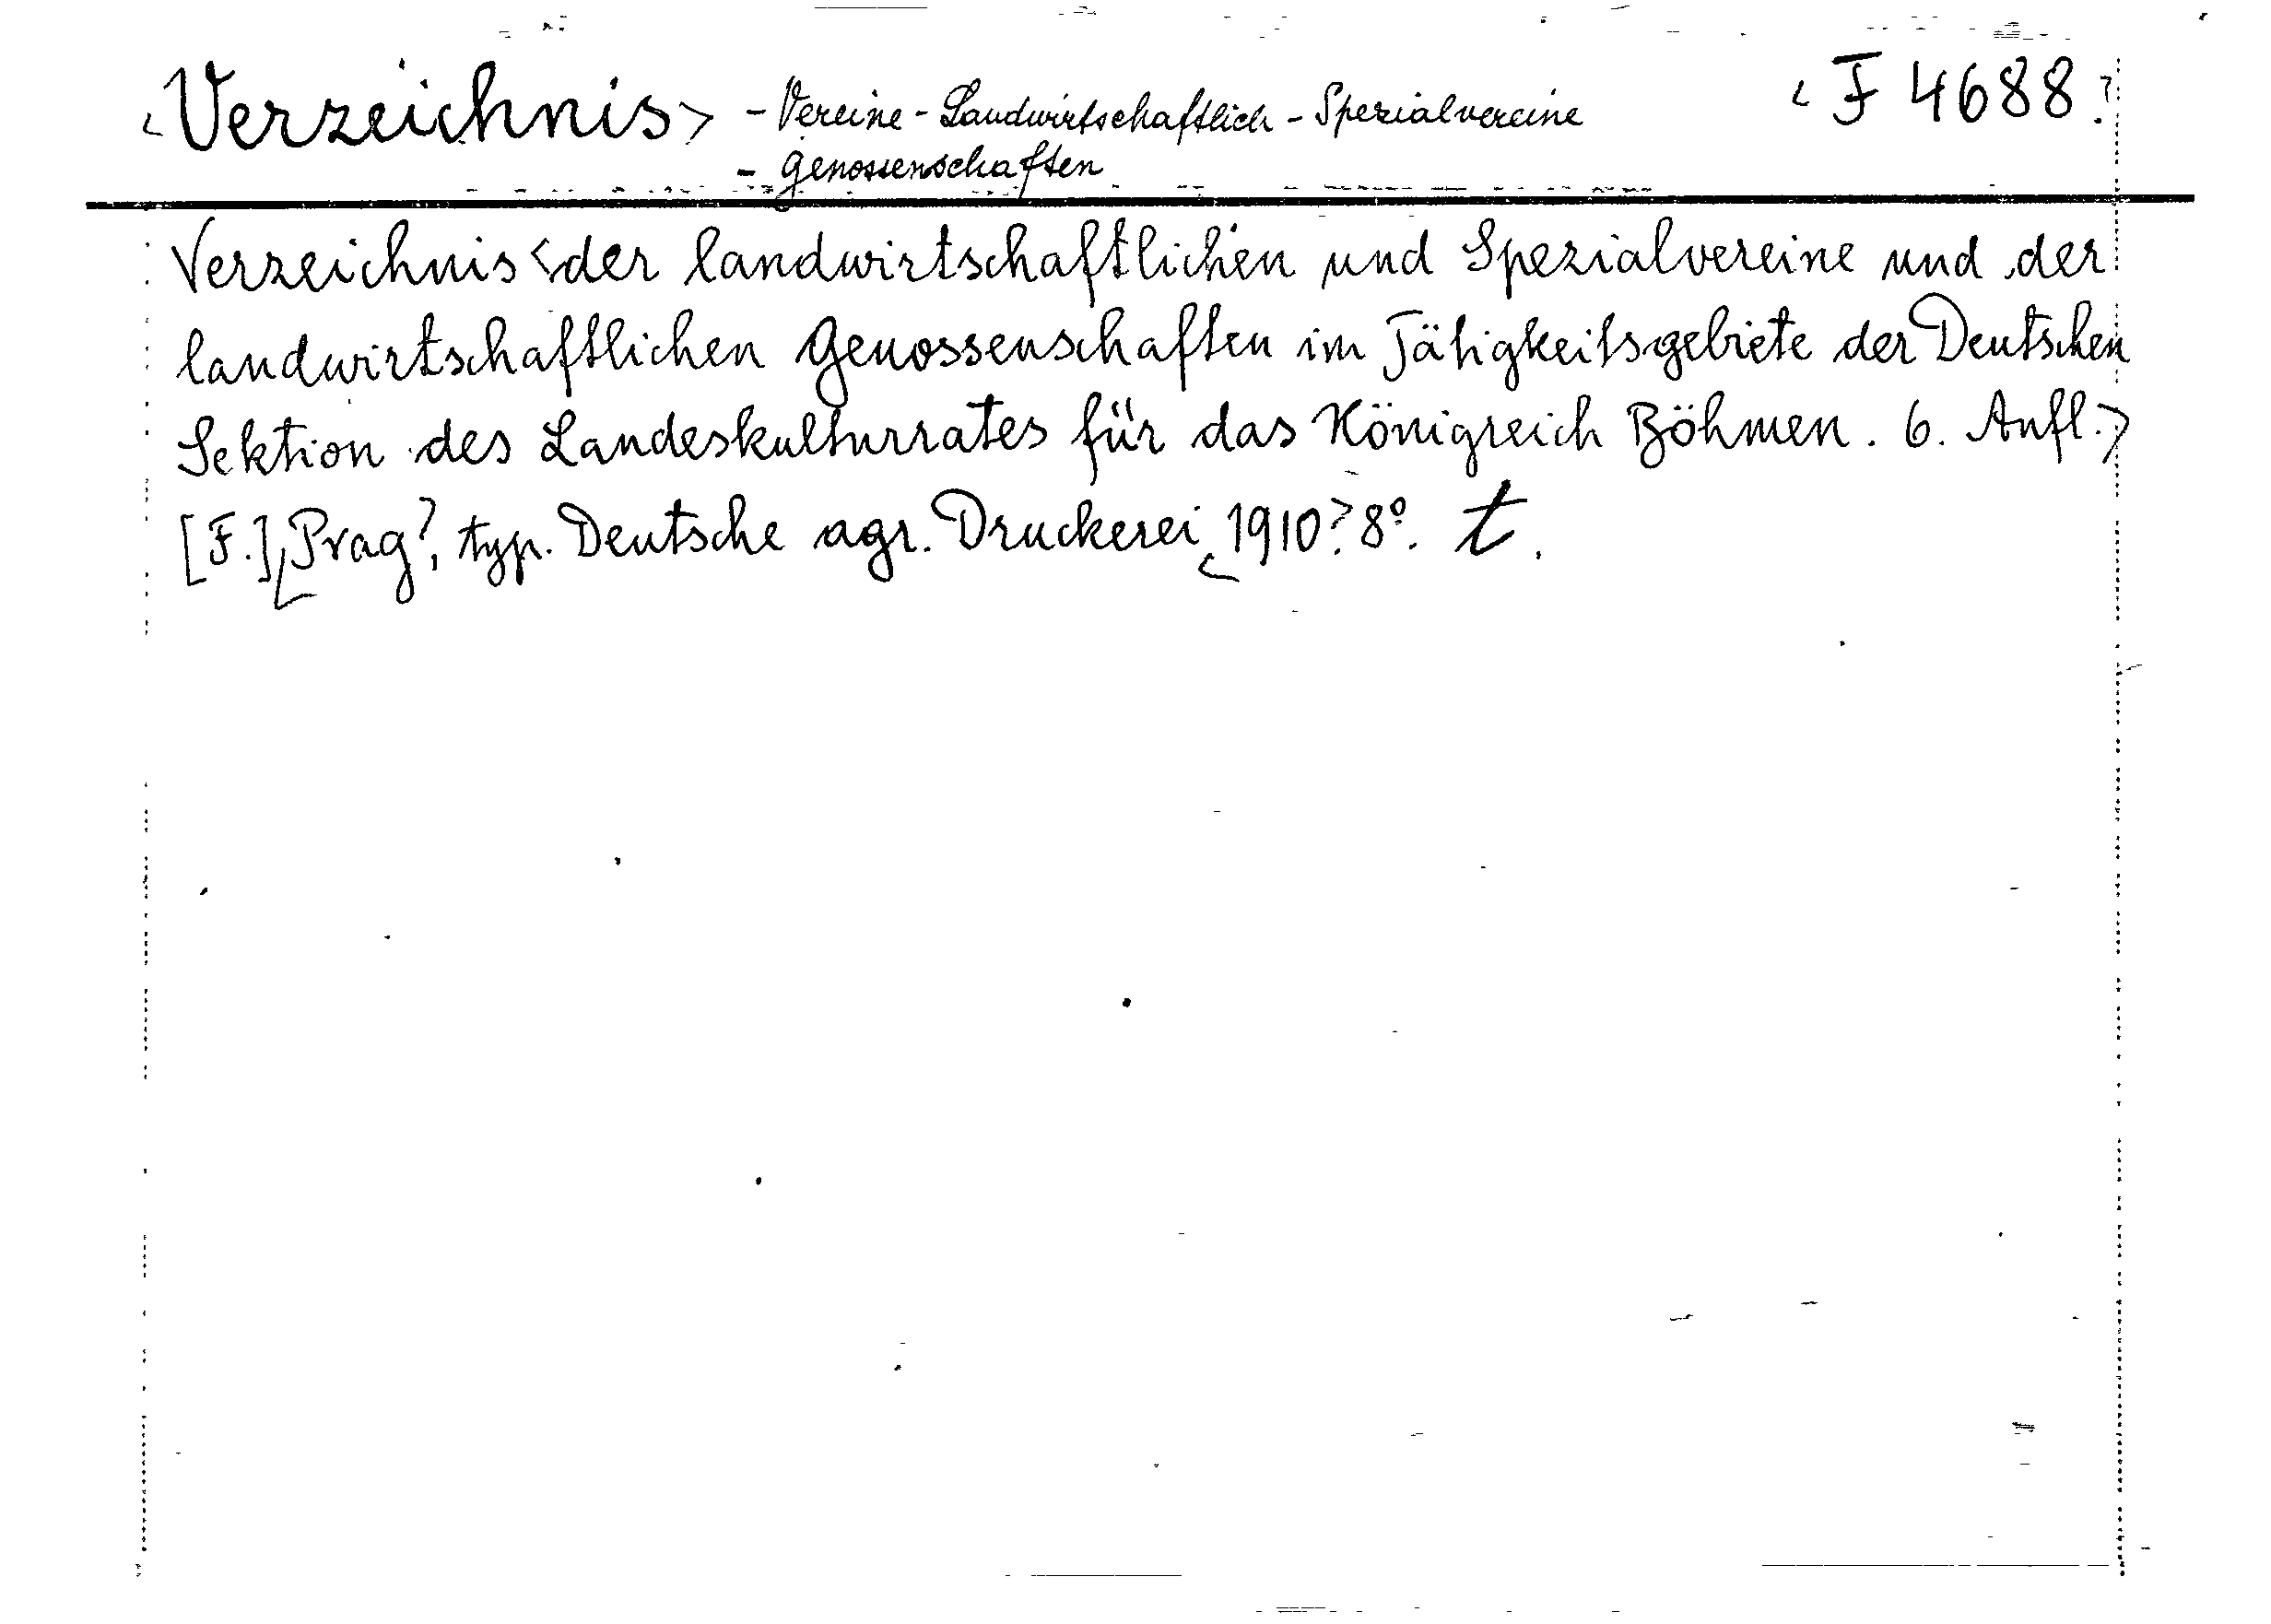 <Verzeichnis> - Vereine - Landwirtschaftlich - Spezialvereine <F 4688.>
- Genossenschaften
Verzeichnis <der landwirtschaftlichen und Spezialvereine und der
landwirtschaftlichen Genossenschaften im Tätigkeitsgebiete der Deutschen
Sektion des Landeskulturrates für das Königreich Böhmen. 6. Aufl.>
[F.], <Prag>, typ. Deutsche agr. Druckerei <1910>. 8°. t.